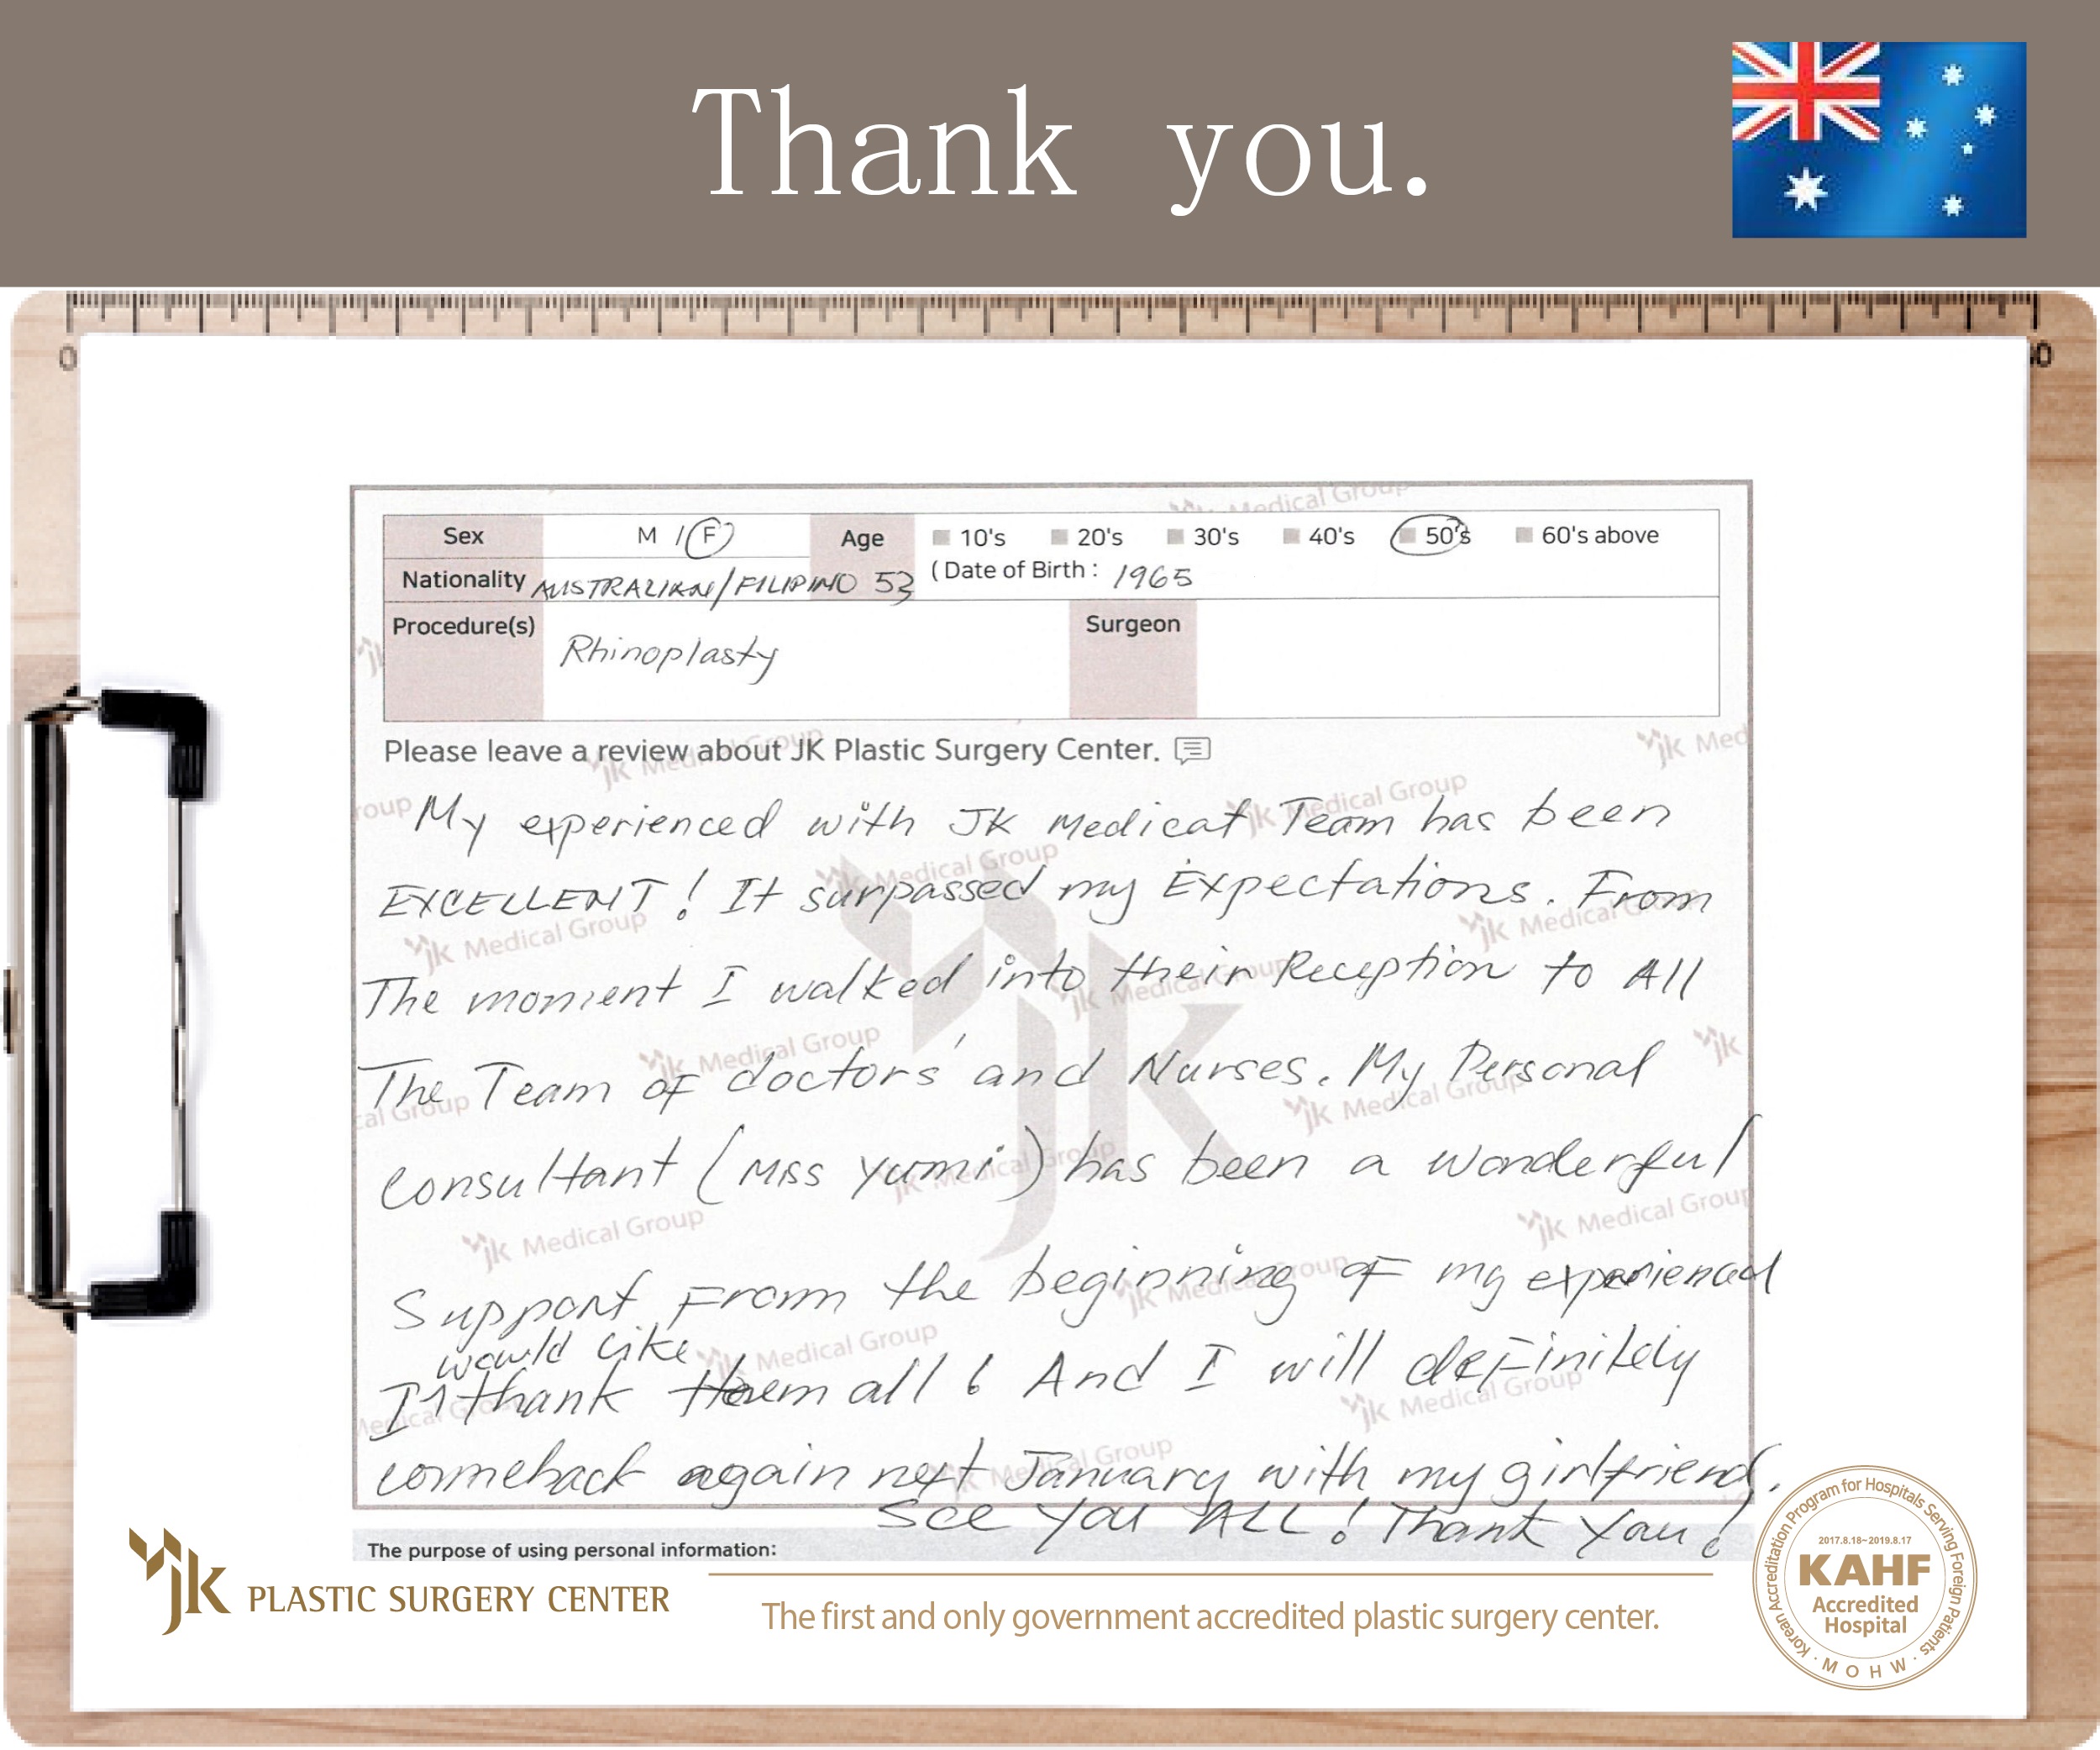 Thank you.
0
Sex M / F Age 10's 20's 30's 40's 50's 60's above
Nationality AUSTRALIAN/FILIPINO 53 (Date of Birth : 1965
Procedure(s) Rhinoplasty Surgeon
Please leave a review about JK Plastic Surgery Center.
My experienced with JK Medical Team has been
EXCELLENT! It surpassed my Expectations. From
The moment I walked into their Reception to All
The Team of doctors' and Nurses. My Personal
Consultant (Miss Yumi) has been a wonderful
Support From the beginning of my experienced
would like
I ^ thank them all! And I will definitely
comeback again next January with my girlfriend.
See you ALL! Thank You!
The purpose of using personal information:
jk PLASTIC SURGERY CENTER
The first and only government accredited plastic surgery center.
Korean Accreditation Program for Hospitals Serving Foreign Patients · MOHW ·
2017.8.18~2019.8.17
KAHF
Accredited
Hospital
jk Medical Group